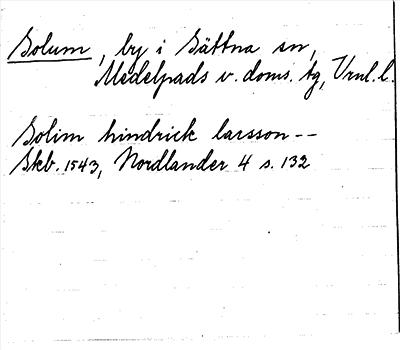 Solum, by i Sättna sn,
Medelpads v. doms. tg, Vrnl. l.
Solim hindrick larsson--
Skb. 1543, Nordlander 4 s. 132